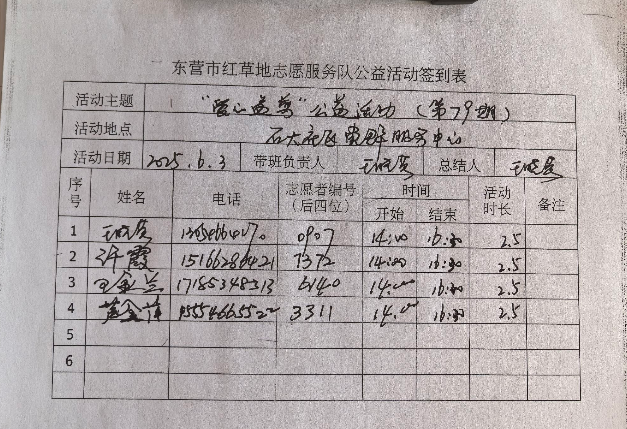 东营市红草地志愿服务队公益活动签到表
活动主题 “爱心益剪”公益活动 (第79期)
活动地点 石大社区党群服务中心
活动日期 2025.6.3 带班负责人 总结人
序号 姓名 电话 志愿者编号(后四位) 时间 活动时长 备注
开始 结束
1 0907 14:00 16:30 2.5
2 许霞 15166286421 7372 14:00 16:30 2.5
3 王金兰 17185348513 6140 14:00 16:30 2.5
4 3311 14:00 16:30 2.5
5
6